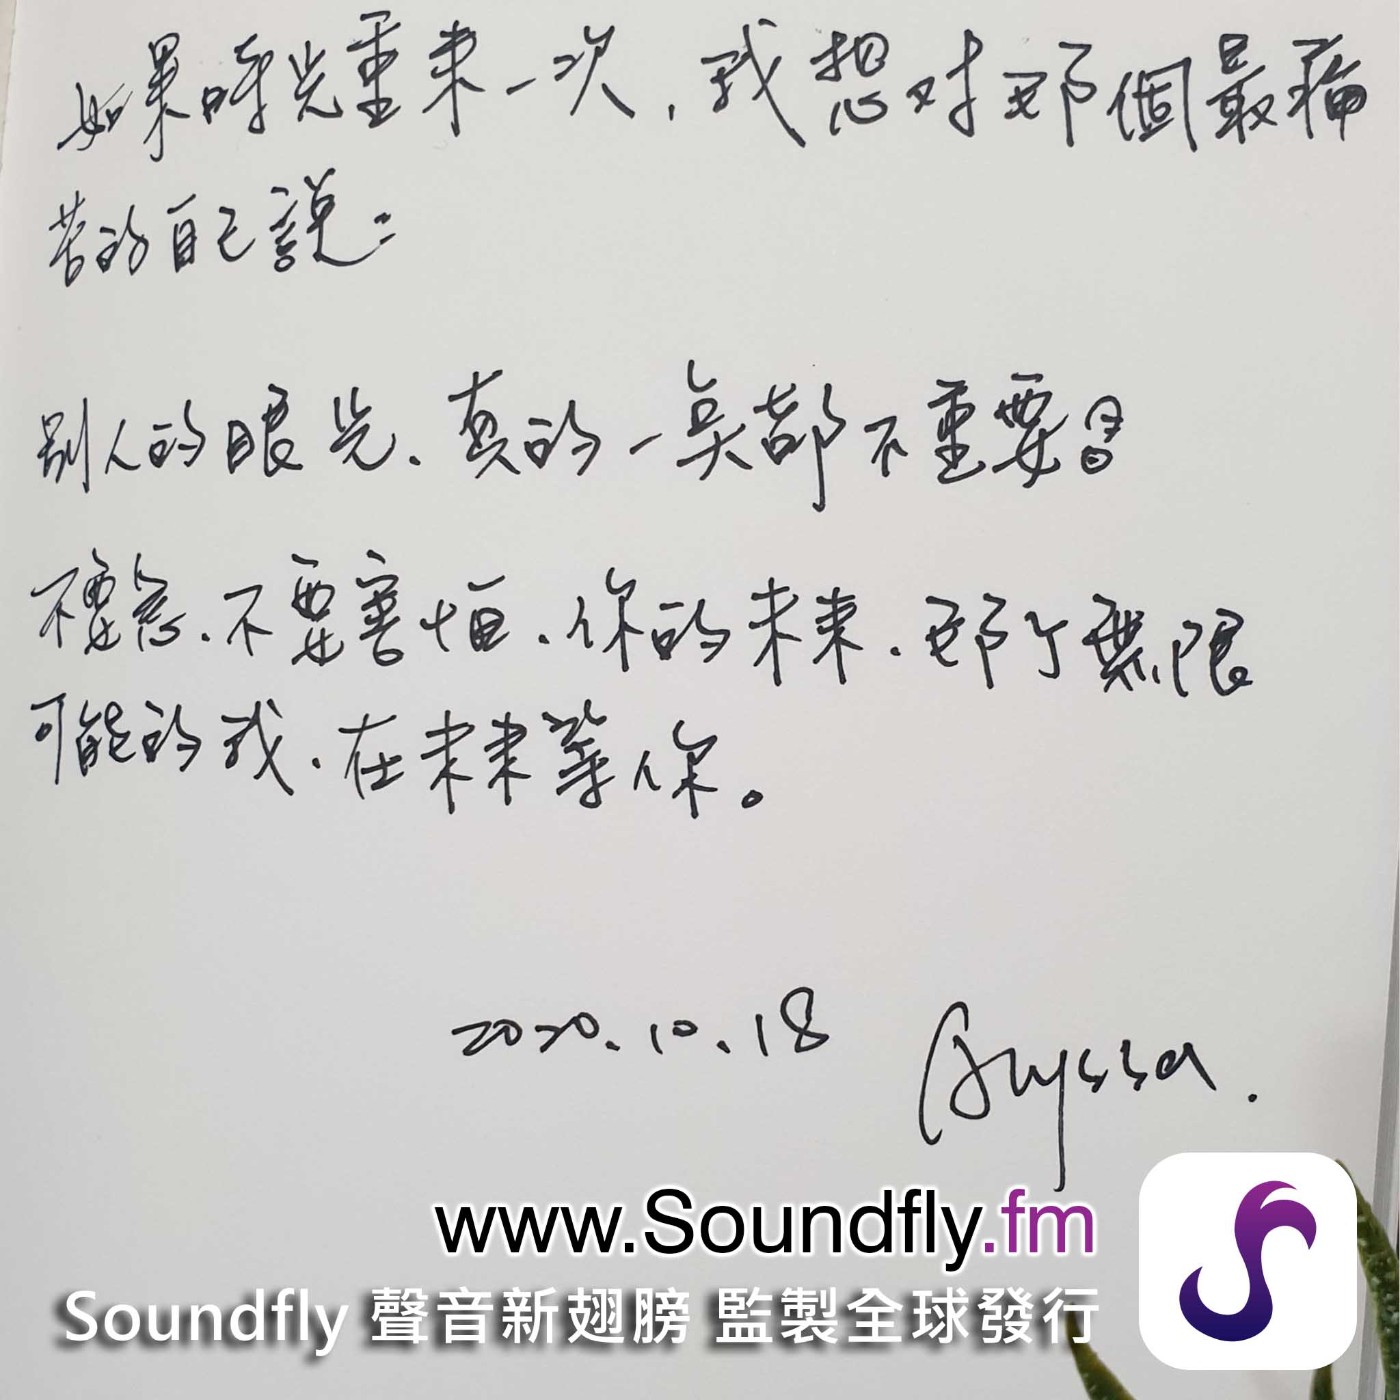 如果時光重來一次，我想对那個最痛
苦的自己說：
别人的眼光、真的一點都不重要
不要急、不要害怕、你的未來、那个無限
可能的我、在未來等你。
2020.10.18 Alyssa.
www.Soundfly.fm
Soundfly 聲音新翅膀 監製全球發行